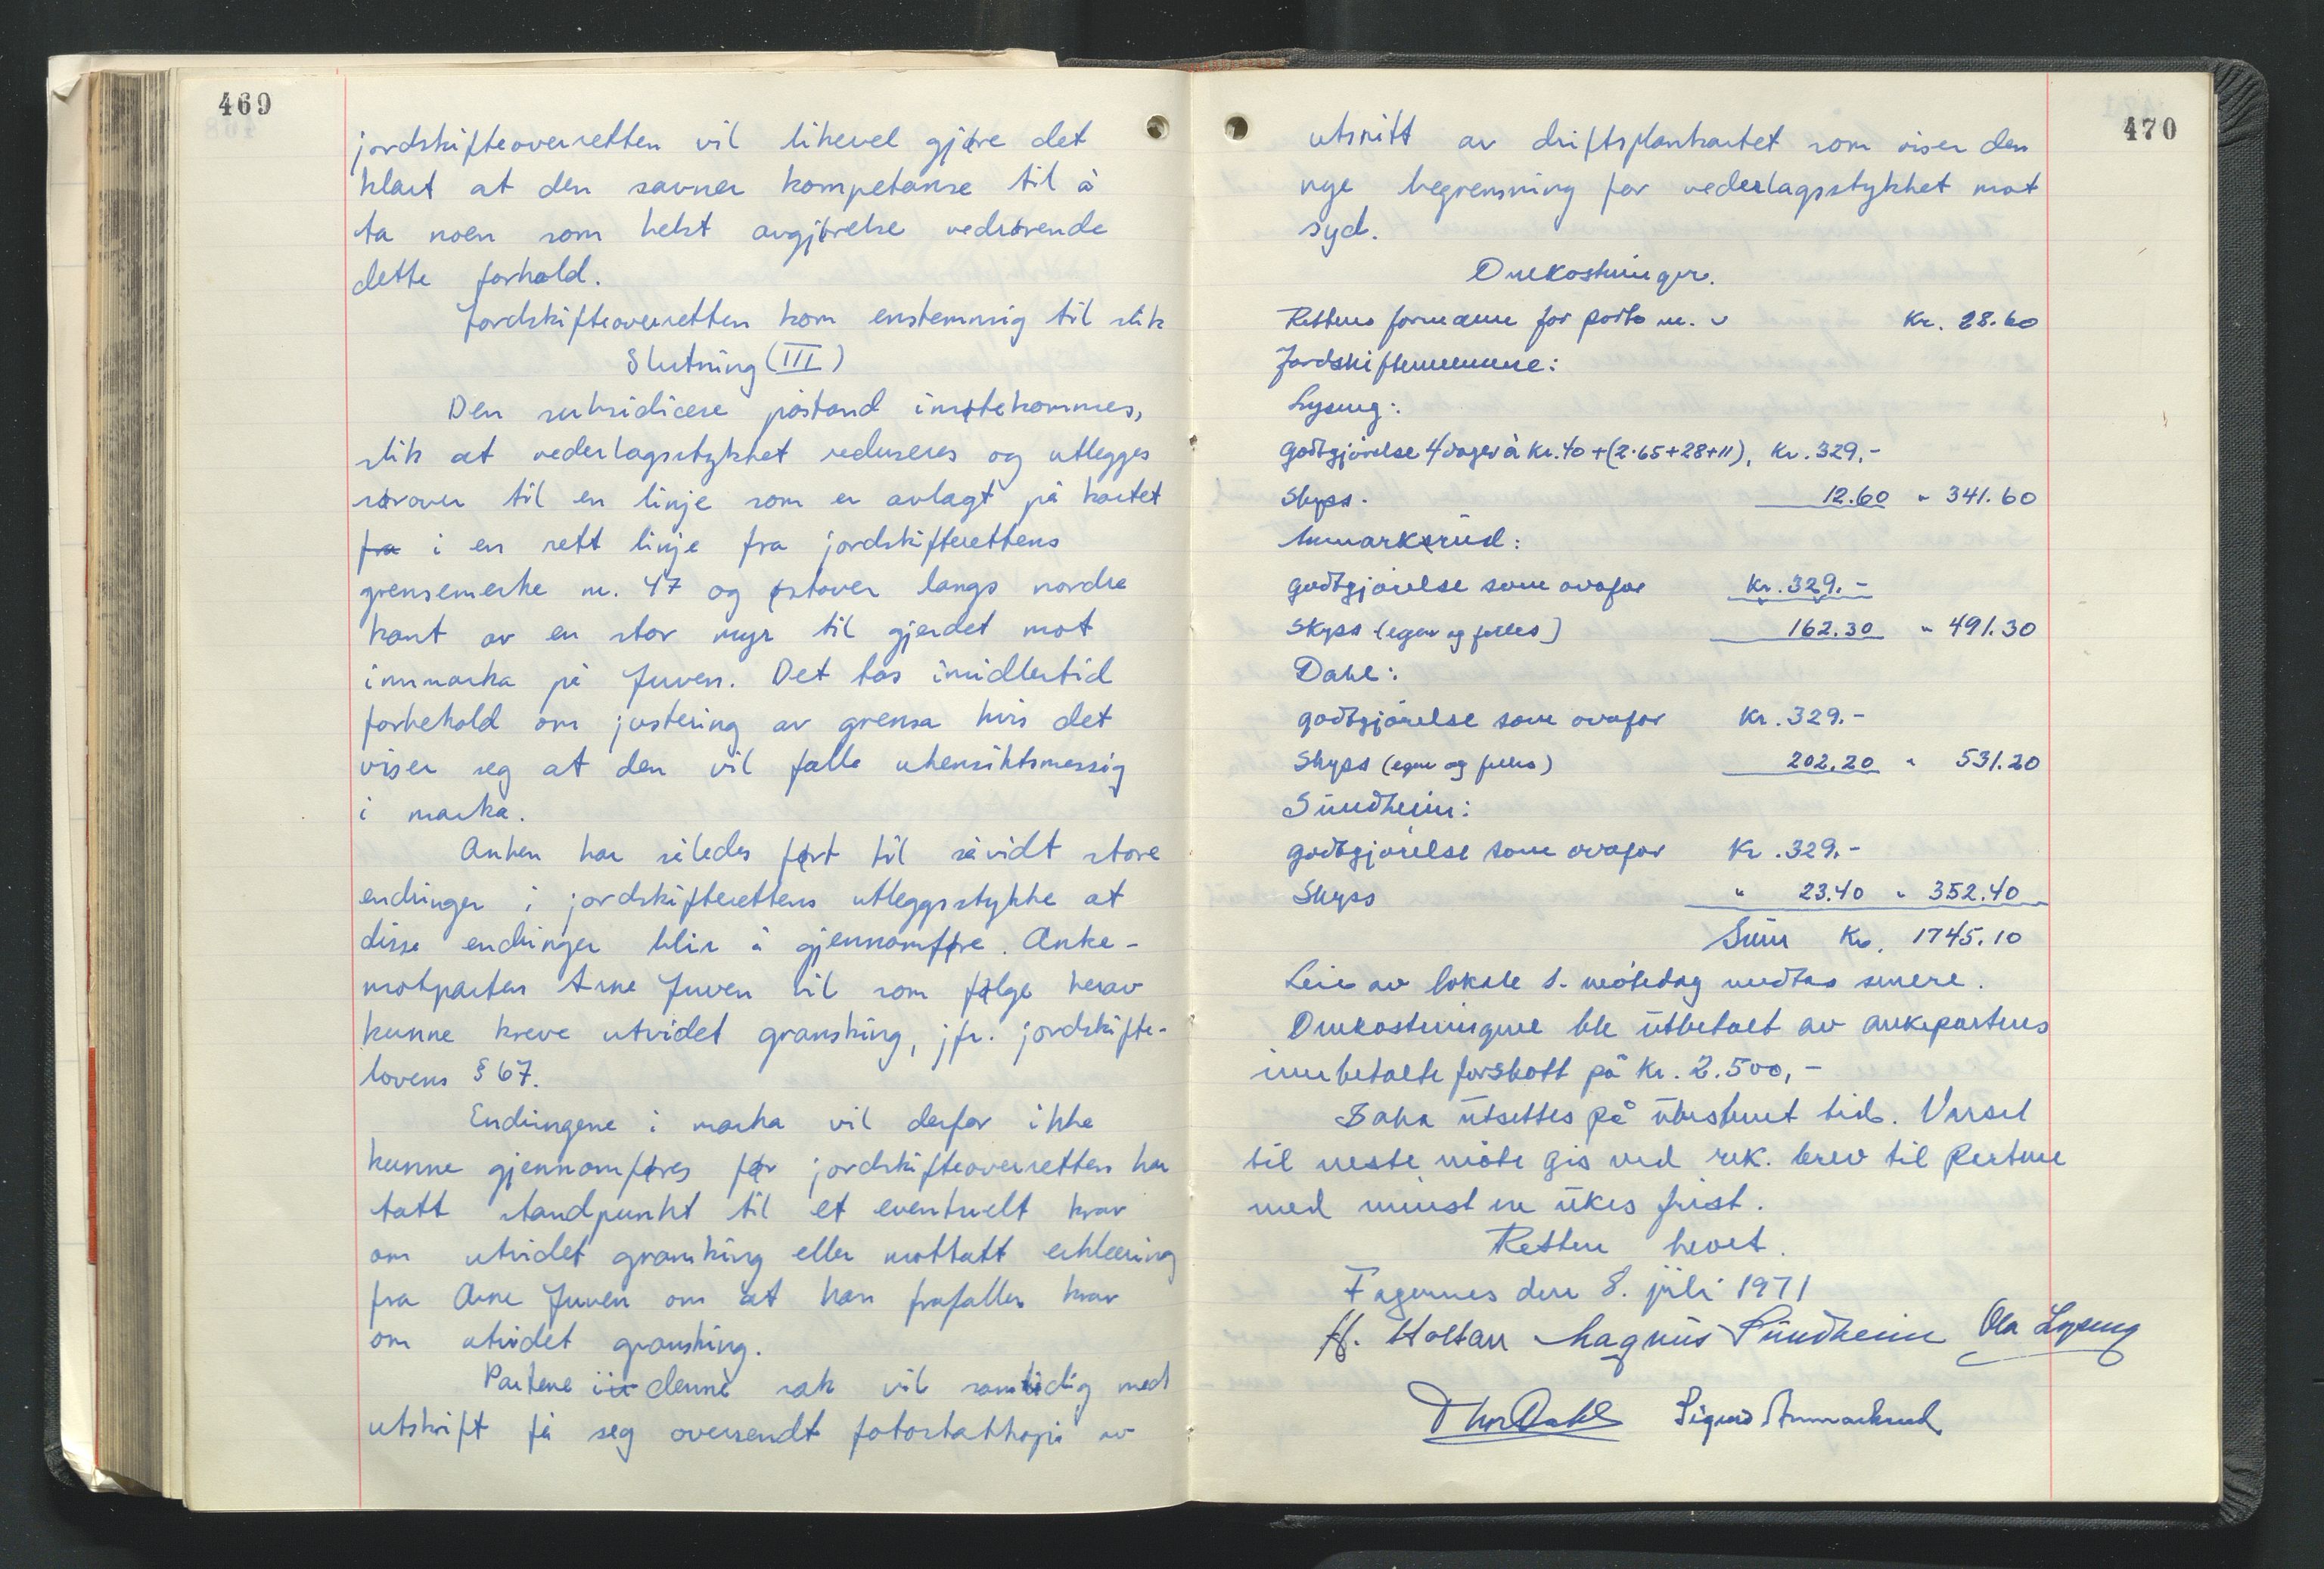 469
jordskifteoverretten vil likevel gjøre det
klart at den savner kompetanse til å
ta noen som helst avgjørelse vedrørende
dette forhold.
Jordskifteoverretten kom enstemmig til slik
Slutning (III)
Den subsidiære påstand imøtekommes,
slik at vederlagsstykket reduseres og utlegges
sørover til en linje som er avlagt på kartet
fra i en rett linje fra jordskifterettens
grensemerke nr. 47 og østover langs nordre
kant av en stor myr til gjerdet mot
innmarka på Juven. Det tas imidlertid
forbehold om justering av grensa hvis det
viser seg at den vil falle uhensiktsmessig
i marka.
Anken har således ført til såvidt store
endringer i jordskifterettens utleggsstykke at
disse endringer blir å gjennomføre. Anke-
motparten Arne Juven vil som følge herav
kunne kreve utvidet gransking, jfr. jordskifte-
lovens § 67.
Endringene i marka vil derfor ikke
kunne gjennomføres før jordskifteoverretten har
tatt standpunkt til et eventuelt krav
om utvidet gransking eller mottatt erklæring
fra Arne Juven om at han frafaller krav
om utvidet gransking.
Partene i denne sak vil samtidig med
utskrift få seg oversendt fotostatkopi av
470
utsnitt av driftsplankartet som viser den
nye begrensning for vederlagsstykket mot
syd.
Omkostninger.
Rettens formann for porto m. v Kr. 28.60
Jordskiftemennene:
Lyseng:
godtgjørelse 4 dager à kr. 40 + (2·65+28+11), Kr. 329,-
Skyss. 12.60 " 341.60
Ammarkerud:
godtgjørelse som ovafor Kr. 329.-
Skyss (egen og felles) 162.30 " 491.30
Dahl:
godtgjørelse som ovafor Kr. 329.-
Skyss (egen og felles) 202.20 " 531.20
Sundheim:
godtgjørelse som ovafor Kr. 329.-
Skyss " 23.40 " 352.40
Sum Kr. 1745.10
Leie av lokale 1. møtedag medtas senere.
Omkostningene ble utbetalt av ankepartens
innbetalte forskott på kr. 2.500,-
Saka utsettes på ubestemt tid. Varsel
til neste møte gis ved rek. brev til Partene
med minst en ukes frist.
Retten hevet.
Fagernes den 8. juli 1971
H. Holtan Magnus Sundheim Ola Lyseng
Thor Dahl Sigurd Ammarkrud